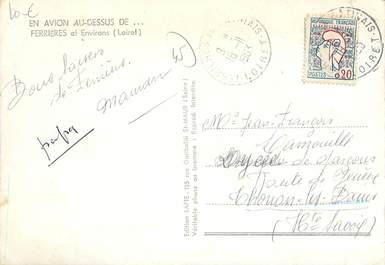 10€
EN AVION AU-DESSUS DE ...
FERRIERES et Environs (Loiret)
Bons baisers
de Ferrières.
maman
papa
Edition LAPIE - 125 rue Garibaldi St-MAUR (Seine)
Véritable photo au bromure
REPUBLIQUE FRANÇAISE
POSTES
0,20
LOIRET
Mr Jean-François
Lycée de Garçons
Route de Genève
Thonon-les-Bains
(Hte Savoie)